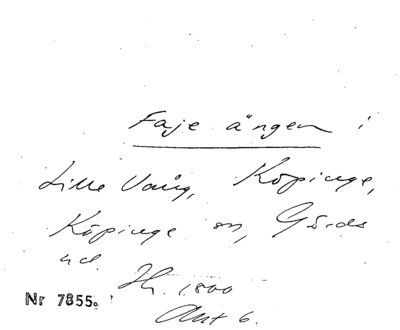 Faje ängen i
Lille Vång, Köpinge,
Köpinge sn, Gärds
hd. Hh. 1800
Akt 6.
Nr 7855.